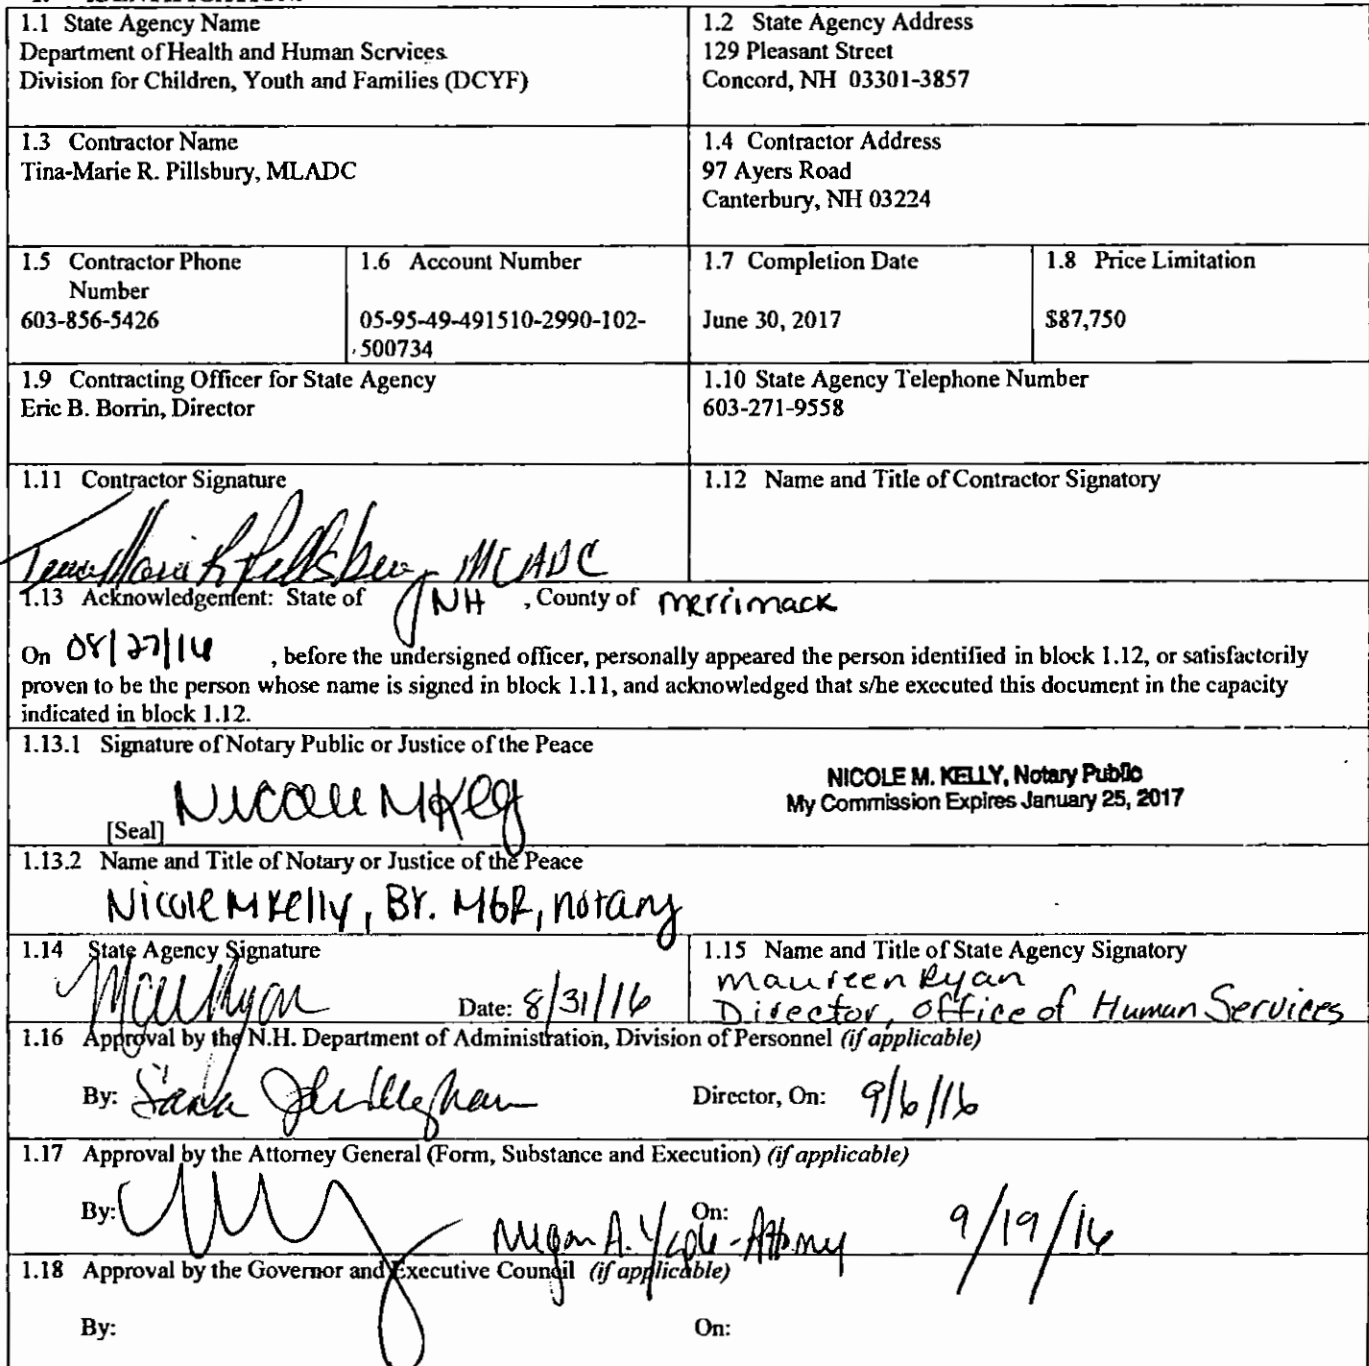 1.1 State Agency Name
Department of Health and Human Services
Division for Children, Youth and Families (DCYF)
1.2 State Agency Address
129 Pleasant Street
Concord, NH 03301-3857
1.3 Contractor Name
Tina-Marie R. Pillsbury, MLADC
1.4 Contractor Address
97 Ayers Road
Canterbury, NH 03224
1.5 Contractor Phone
Number
603-856-5426
1.6 Account Number
05-95-49-491510-2990-102-
500734
1.7 Completion Date
June 30, 2017
1.8 Price Limitation
$87,750
1.9 Contracting Officer for State Agency
Eric B. Borrin, Director
1.10 State Agency Telephone Number
603-271-9558
1.11 Contractor Signature
Tina-Marie R Pillsbury MLADC
1.12 Name and Title of Contractor Signatory
1.13 Acknowledgement: State of NH , County of merrimack
On 08/27/16 , before the undersigned officer, personally appeared the person identified in block 1.12, or satisfactorily
proven to be the person whose name is signed in block 1.11, and acknowledged that s/he executed this document in the capacity
indicated in block 1.12.
1.13.1 Signature of Notary Public or Justice of the Peace
Nicole M Kelly
NICOLE M. KELLY, Notary Public
My Commission Expires January 25, 2017
[Seal]
1.13.2 Name and Title of Notary or Justice of the Peace
Nicole M Kelly, Br. MGR, notary
1.14 State Agency Signature
Date: 8/31/16
1.15 Name and Title of State Agency Signatory
maureen Ryan
Director, office of Human Services
1.16 Approval by the N.H. Department of Administration, Division of Personnel (if applicable)
By: Director, On: 9/6/16
1.17 Approval by the Attorney General (Form, Substance and Execution) (if applicable)
By: Megan A. - Attorney On: 9/19/16
1.18 Approval by the Governor and Executive Council (if applicable)
By: On: